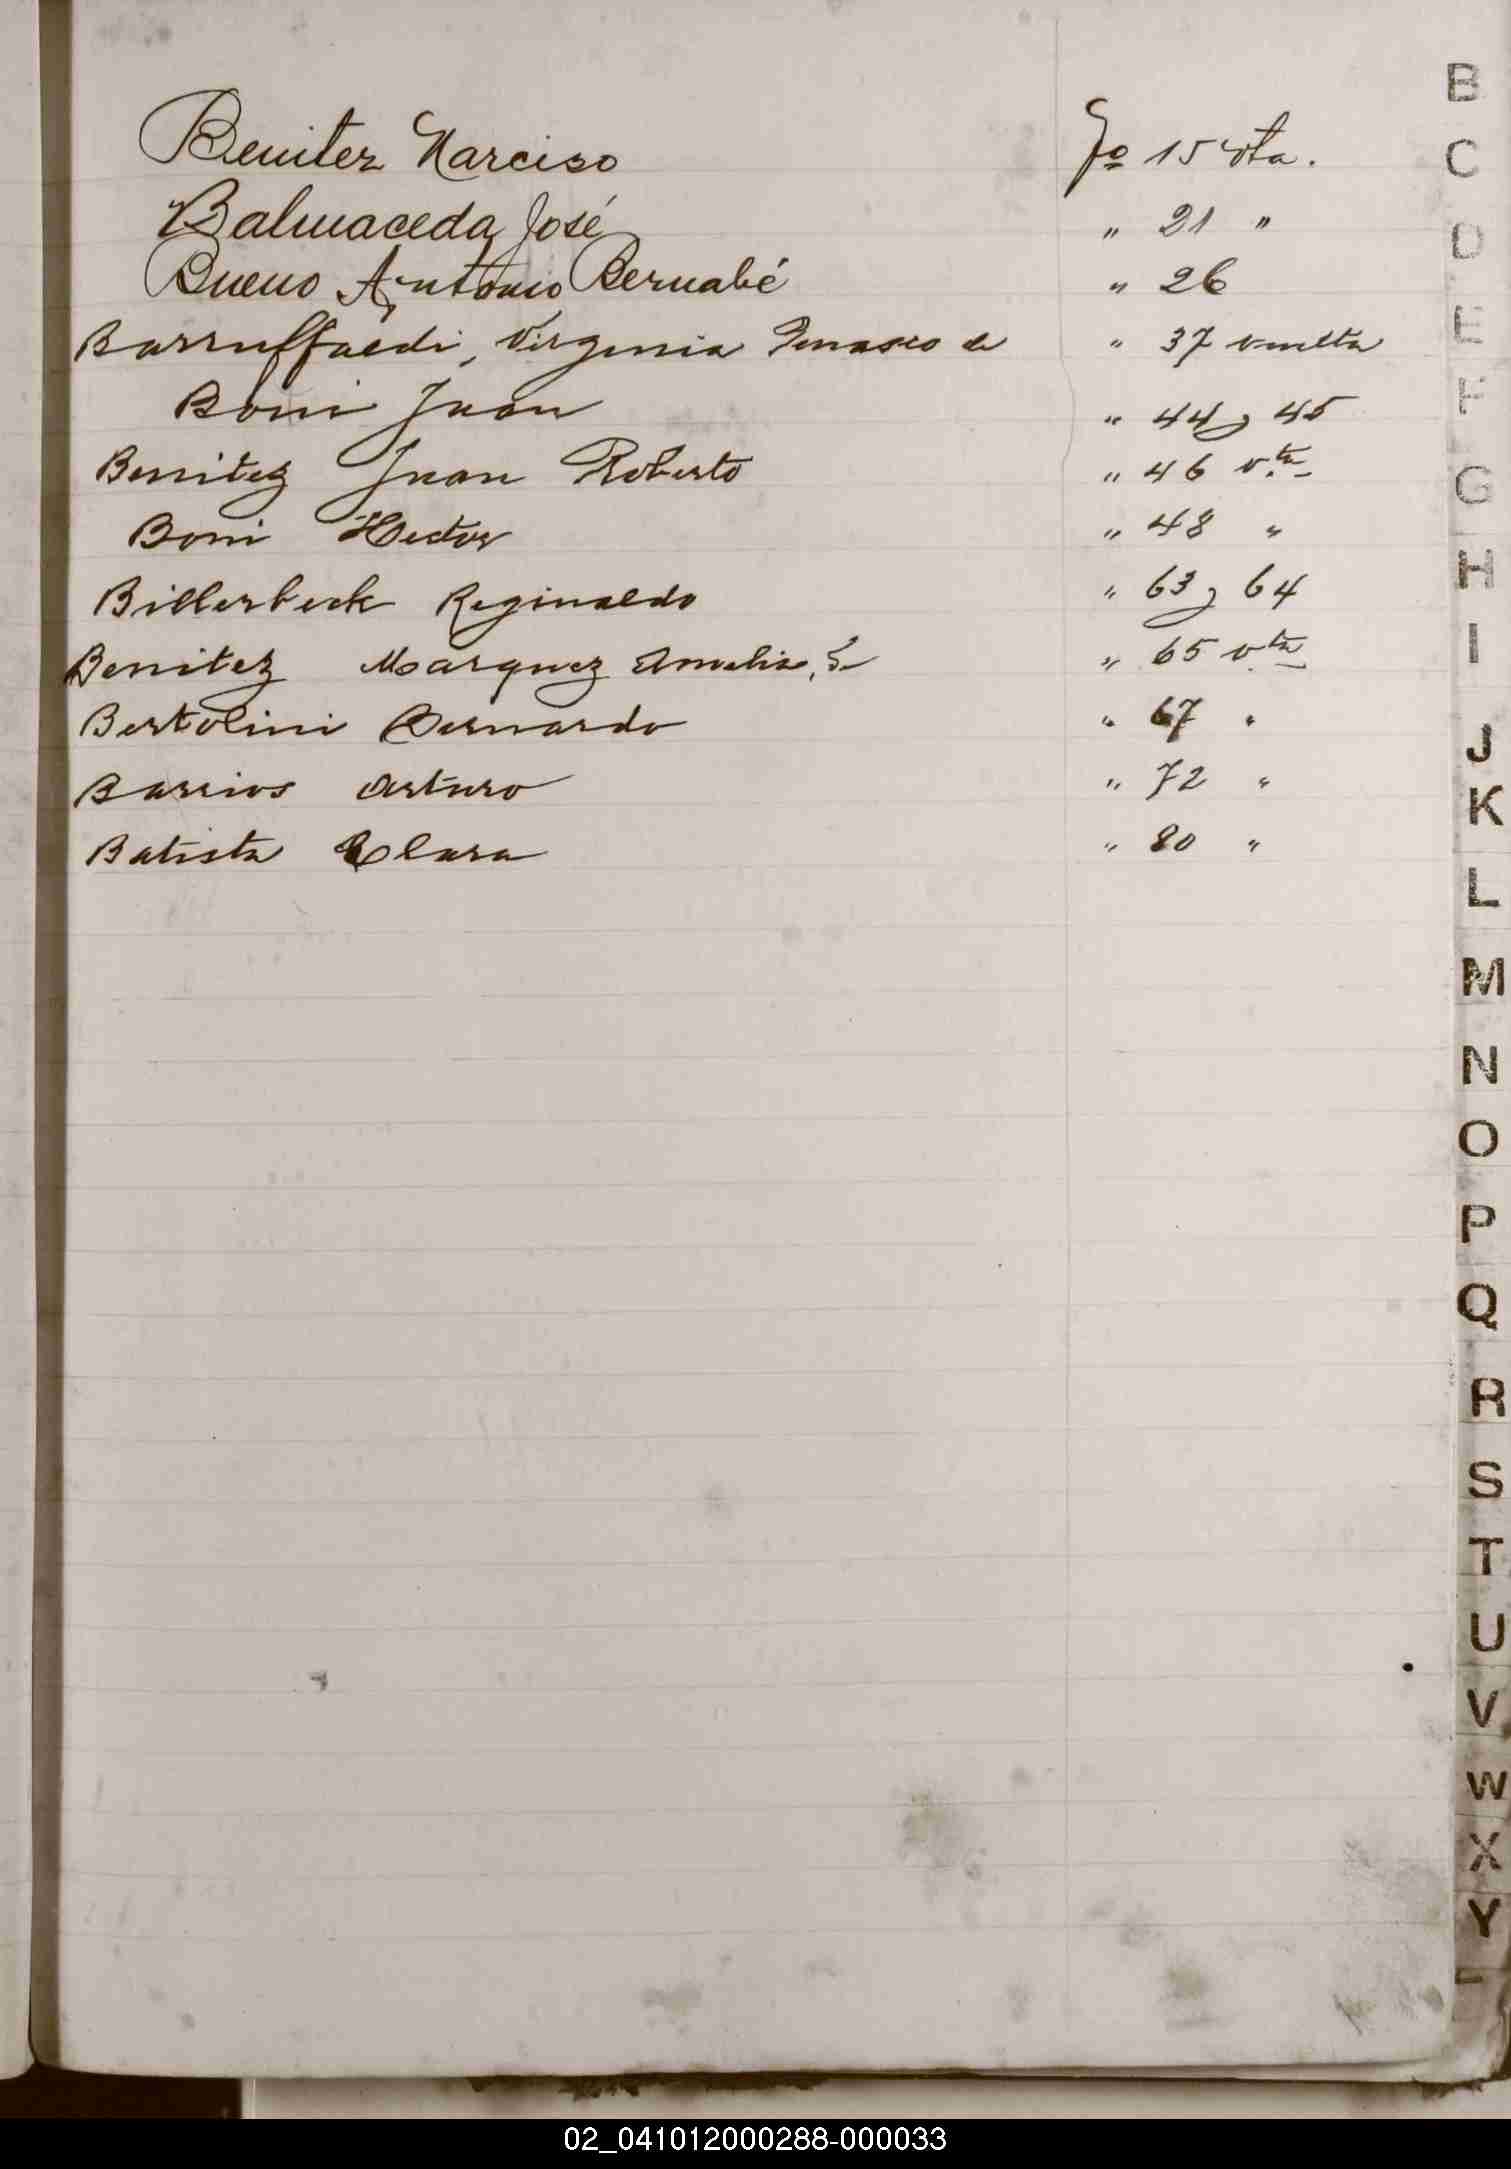 Benitez Narciso Fo 15 vta.
Balmaceda José " 21 "
Bueno Antonio Bernabé " 26
Barruffaldi, Virginia de " 37 vuelta
Boni Juan " 44 y 45
Benitez Juan Roberto " 46 vta
Boni Hector " 48 "
Billerbeck Reginaldo " 63 y 64
Benitez Marquez Amelia, " 65 vta
Bertolini Bernardo " 67 "
Barrios Arturo " 72 "
Batista Clara " 80 "
B
C
D
E
F
G
H
I
J
K
L
M
N
O
P
Q
R
S
T
U
V
W
X
Y
02_041012000288-000033